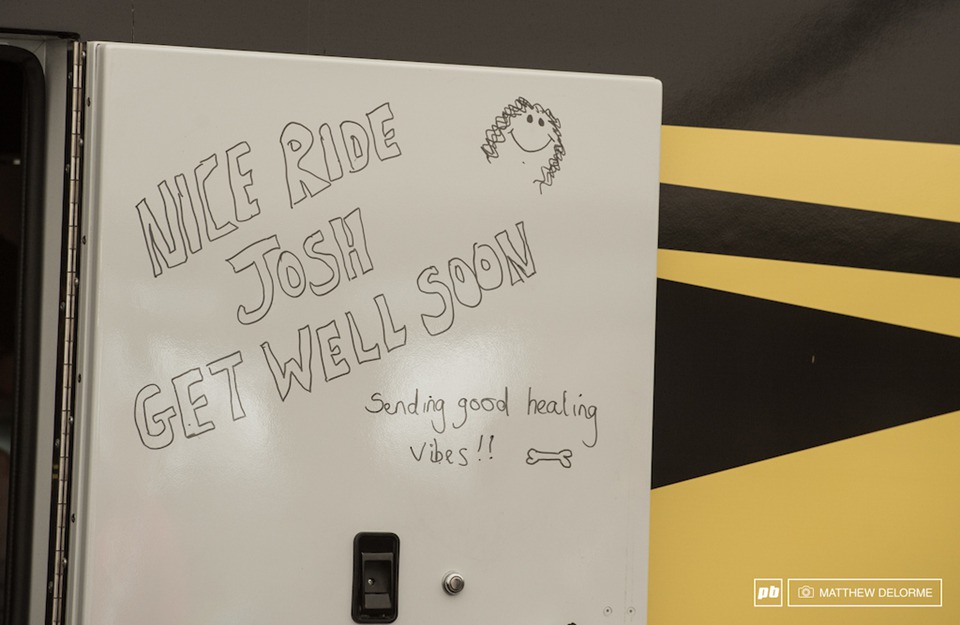 NICE RIDE
JOSH
GET WELL SOON
Sending good healing
vibes!!
pb MATTHEW DELORME